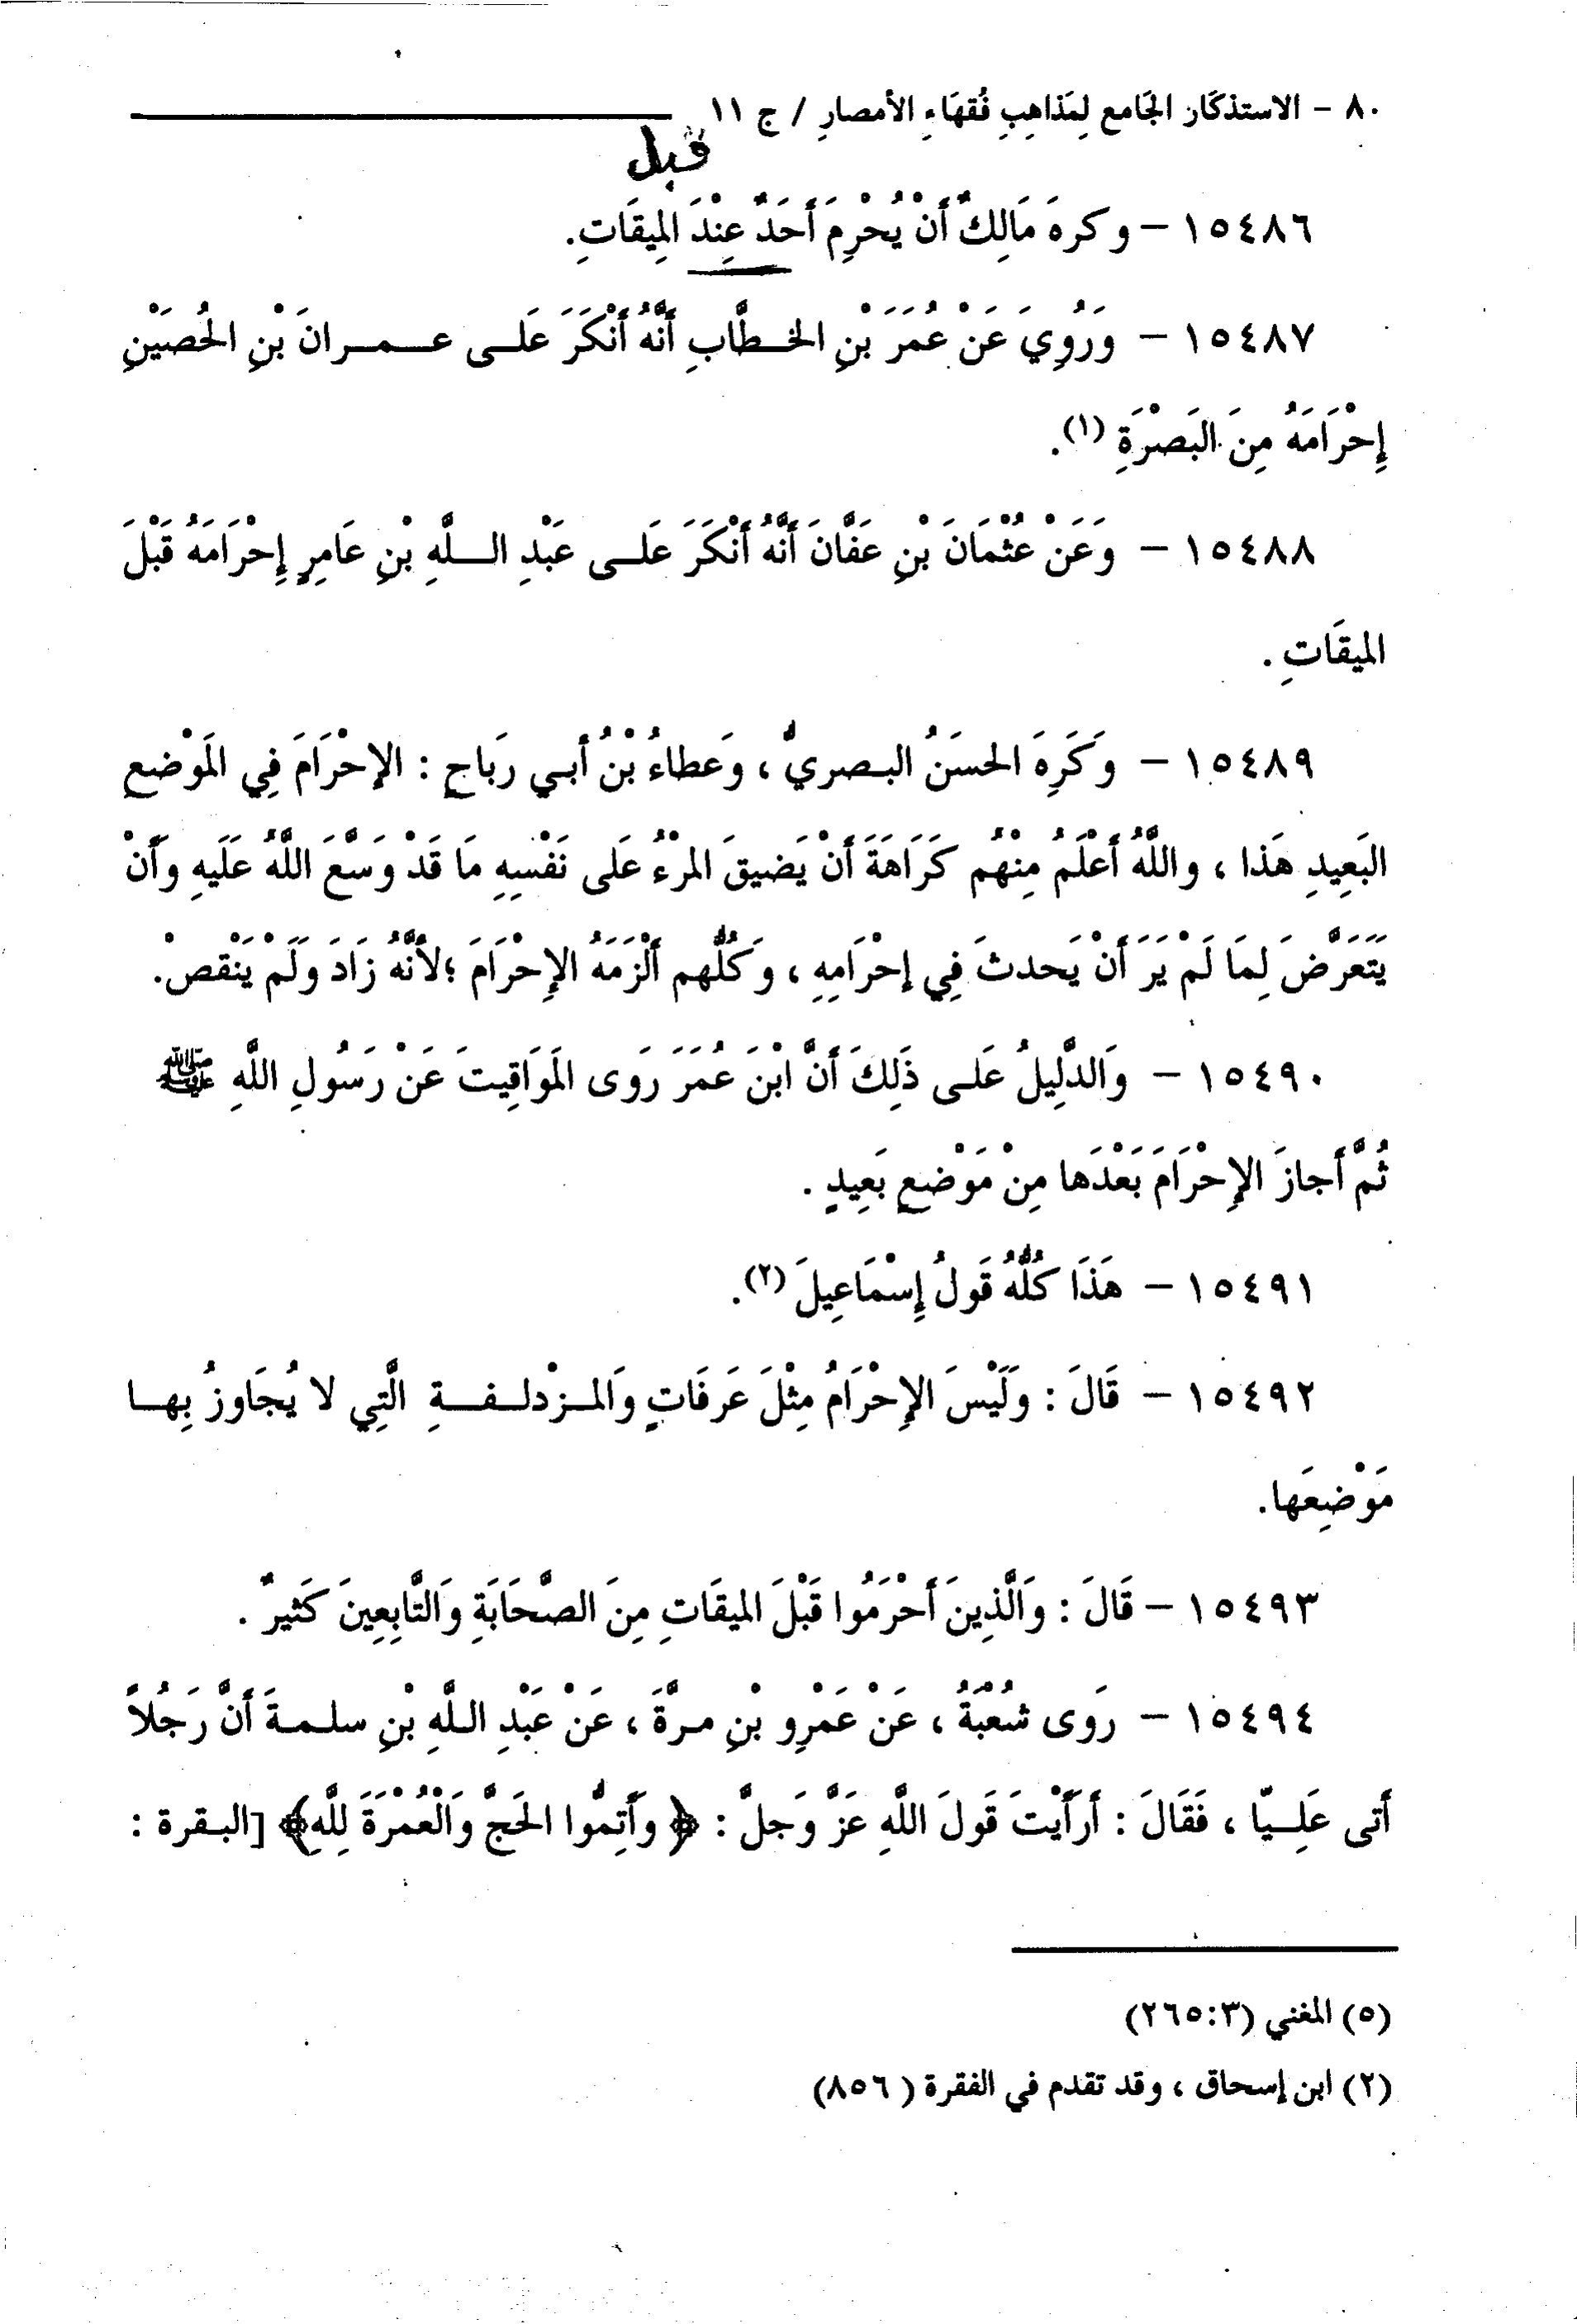 ٨٠ – الاستذكَار الجَامع لِمَذاهِبِ فُقهَاءِ الأمصارِ / ج ١١
قبل
١٥٤٨٦ – وكرهَ مَالِكٌ أَنْ يُحْرِمَ أَحَدٌ عِنْدَ المِيقَاتِ.
١٥٤٨٧ – وَرُوِيَ عَنْ عُمَرَ بْنِ الخطَّابِ أَنَّهُ أَنْكَرَ عَلى عمرانَ بْنِ الحُصَيْنِ
إِحْرَامَهُ مِنَ البَصْرَةِ (١).
١٥٤٨٨ – وَعَنْ عُثْمَانَ بْنِ عَفَّانَ أَنَّهُ أَنْكَرَ عَلى عَبْدِ اللَّهِ بْنِ عَامِرٍ إِحْرَامَهُ قَبْلَ
الميقَاتِ .
١٥٤٨٩ – وَكَرِهَ الحسَنُ البصريُّ ، وَعطاءُ بْنُ أَبي رَباحٍ : الإحْرَامَ فِي المَوْضعِ
البَعِيدِ هَذا ، واللَّهُ أَعْلَمُ مِنْهُم كَرَاهَةَ أَنْ يَضيقَ المرْءُ عَلى نَفْسِهِ مَا قَدْ وَسَّعَ اللَّهُ عَلَيهِ وَأَنْ
يَتَعَرَّضَ لِمَا لَمْ يَرَ أَنْ يَحدثَ فِي إحْرَامِهِ ، وَكُلُّهم أَلْزَمَهُ الإِحْرَامَ ؛لأنَّهُ زَادَ وَلَمْ يَنْقصْ.
١٥٤٩٠ – وَالدَّلِيلُ عَلى ذَلِكَ أَنَّ ابْنَ عُمَرَ رَوى المَوَاقِيتَ عَنْ رَسُولِ اللَّهِ ﷺ
ثُمَّ أَجازَ الإِحْرَامَ بَعْدَها مِنْ مَوْضعٍ بَعِيدٍ .
١٥٤٩١ – هَذَا كُلُّهُ قَولُ إِسْمَاعِيلَ (٢).
١٥٤٩٢ – قَالَ : وَلَيْسَ الإِحْرَامُ مِثْلَ عَرفَاتٍ وَالمزْدلفةِ الَّتِي لا يُجَاوزُ بِها
مَوْضِعَها.
١٥٤٩٣ – قَالَ : وَالَّذِينَ أَحْرَمُوا قَبْلَ الميقَاتِ مِنَ الصَّحَابَةِ وَالتَّابِعِينَ كَثيرٌ .
١٥٤٩٤ – رَوى شُعْبَةُ ، عَنْ عَمْرِو بْنِ مرَّةَ ، عَنْ عَبْدِ اللَّهِ بْنِ سلمةَ أَنَّ رَجُلاً
أَتى عَلِيّا ، فَقَالَ : أَرَأَيْتَ قَولَ اللَّهِ عَزَّ وَجلَّ : ﴿ وَأَتِمُّوا الحَجَّ وَالْعُمْرَةَ لِلَّهِ﴾ [البقرة :
(٥) المغني (٢٦٥:٣)
(٢) ابن إسحاق ، وقد تقدم في الفقرة ( ٨٥٦)